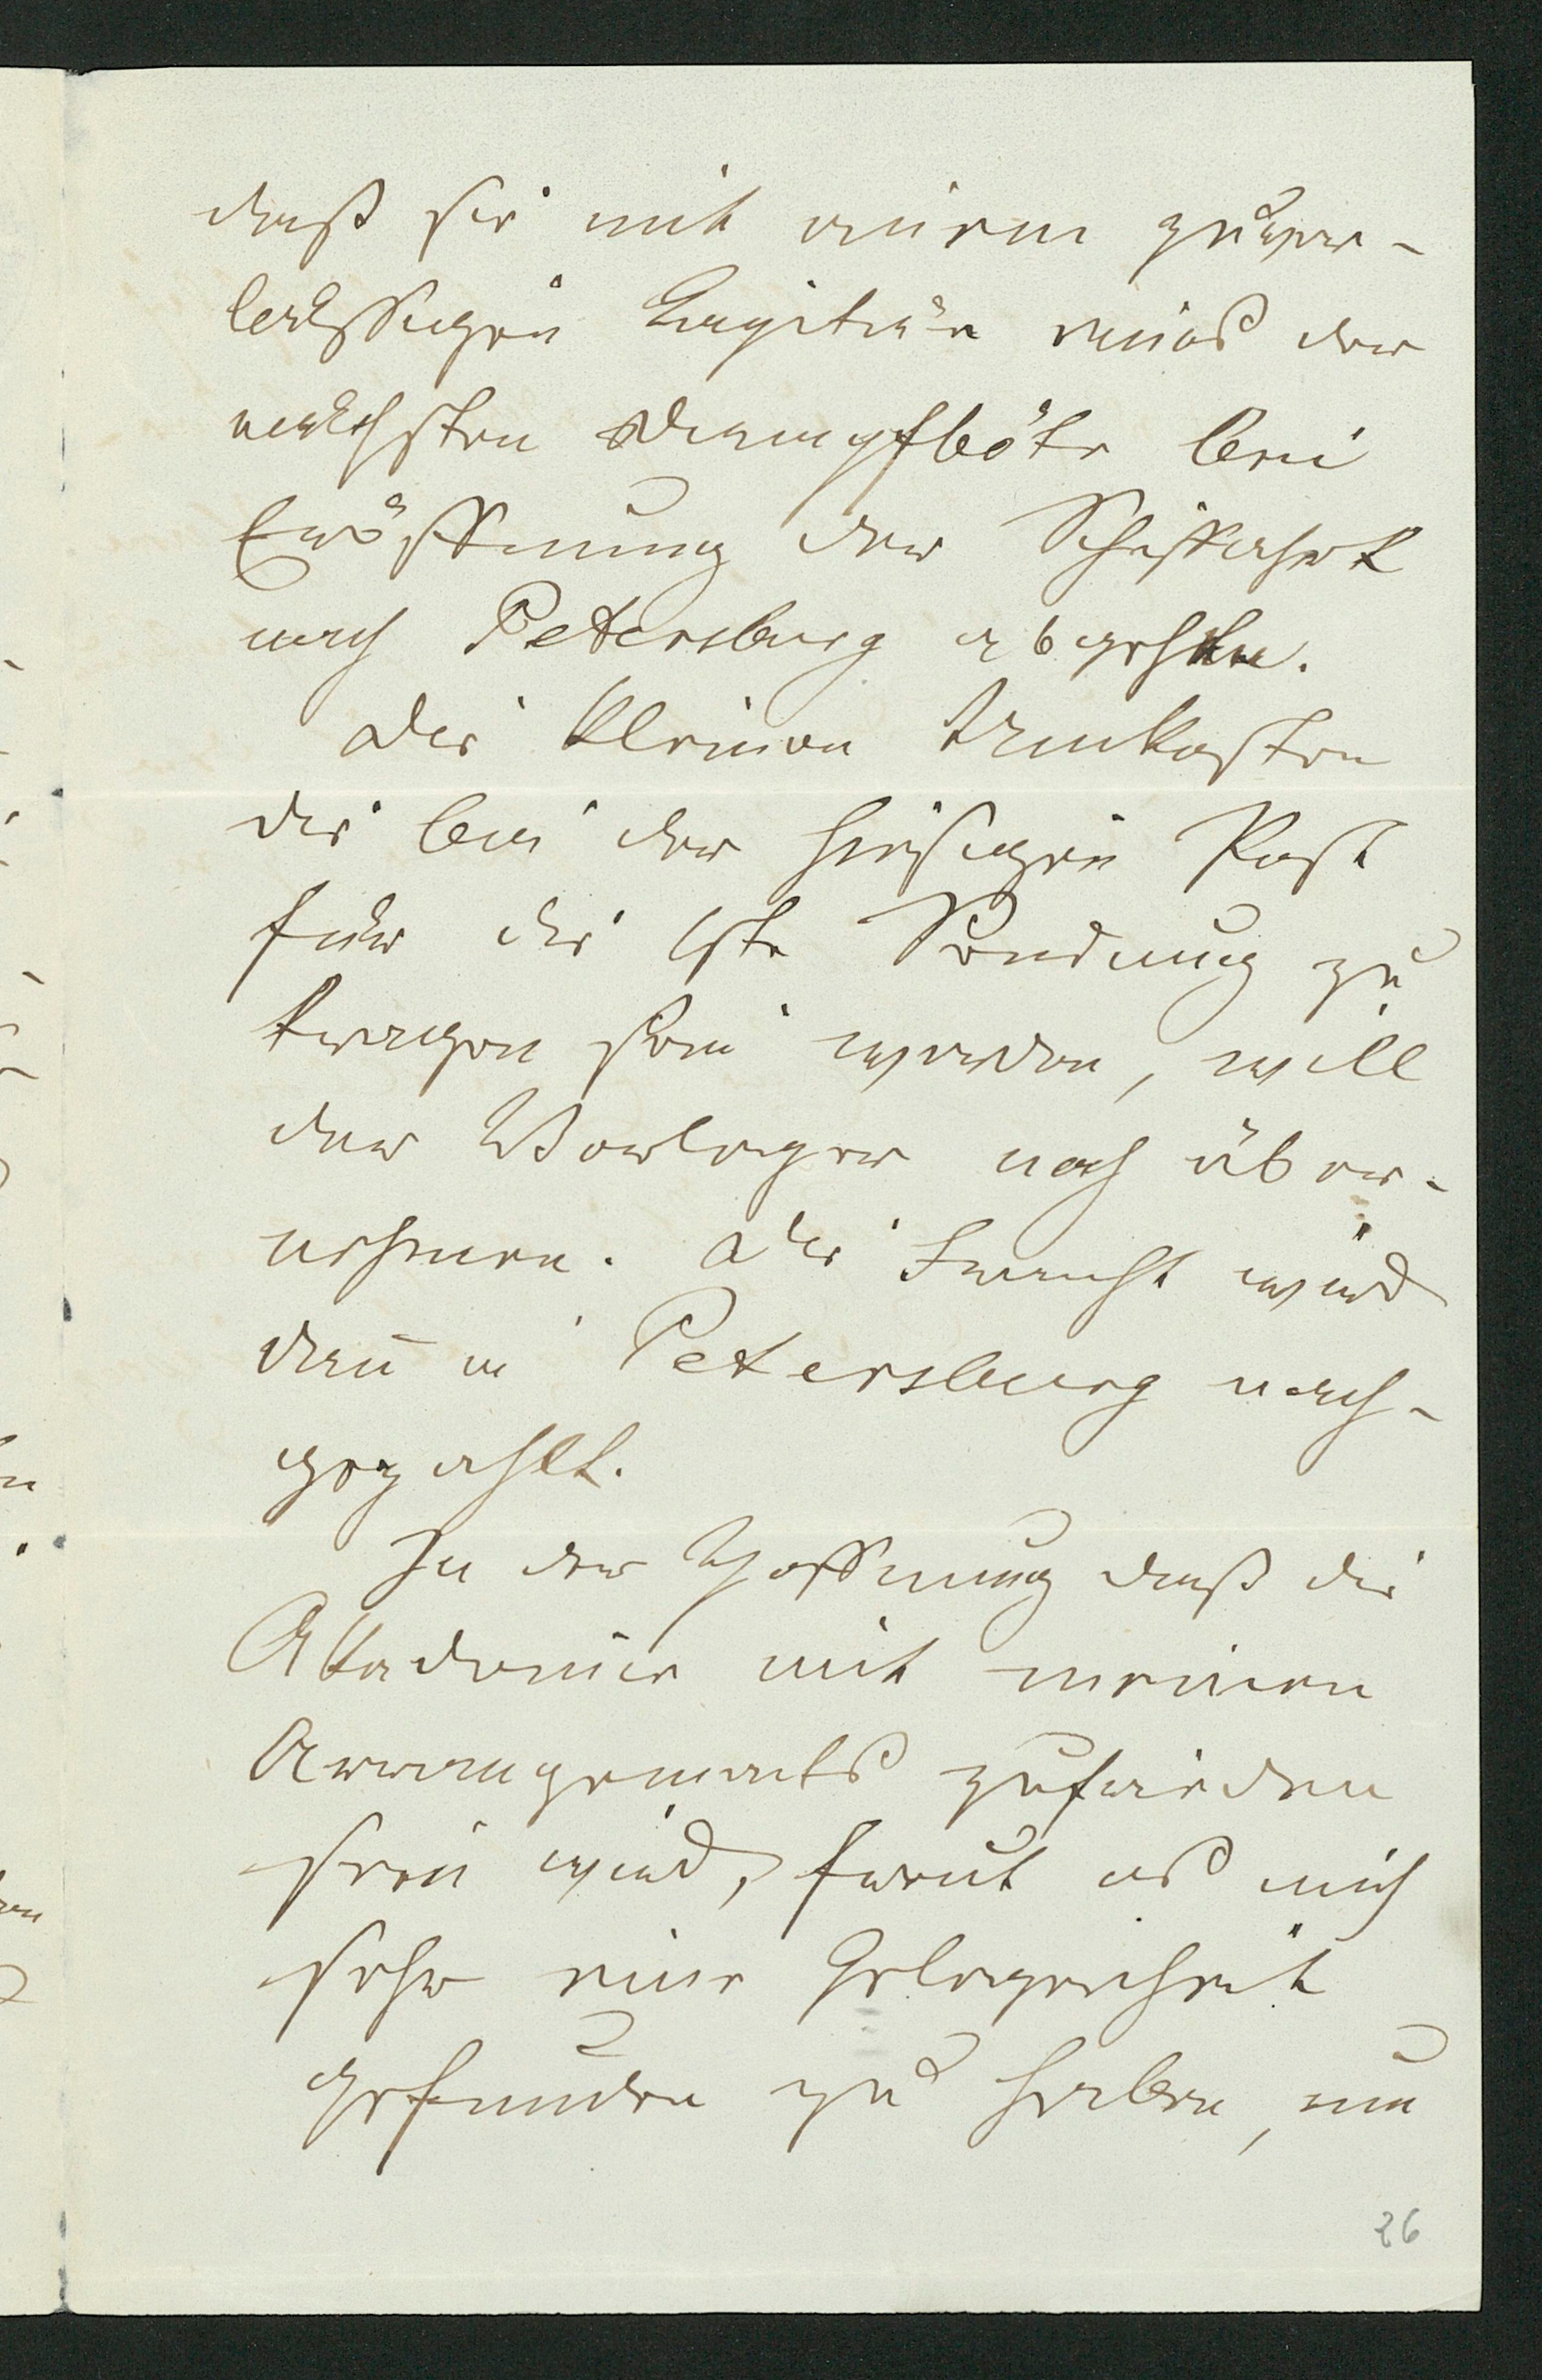 daß sie mit einem zuver-
lässigen Capitän eines der
nächsten Dampfböte bei
Eröffnung der Schiffahrt
nach Petersburg abgehen.
Die kleinen Unkosten
die bei der hiesigen Post
für die 1ste Sendung zu
tragen sein werden, will
der Verleger noch über-
nehmen. Die Fracht wird
dan̄ in Petersburg nach-
gezahlt.
In der Hoffnung daß die
Akademie mit meinen
Arrangements zufrieden
sein wird, freut es mich
sehr eine Gelegenheit
gefunden zu haben, um
26